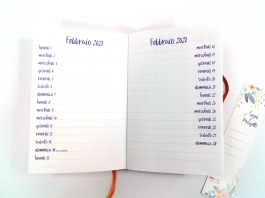 Febbraio 2021
lunedì 1
martedì 2
mercoledì 3
giovedì 4
venerdì 5
sabato 6
domenica 7
lunedì 8
martedì 9
mercoledì 10
giovedì 11
venerdì 12
sabato 13
domenica 14
lunedì 15
Febbraio 2021
martedì 16
mercoledì 17
giovedì 18
venerdì 19
sabato 20
domenica 21
lunedì 22
martedì 23
mercoledì 24
giovedì 25
venerdì 26
sabato 27
domenica 28